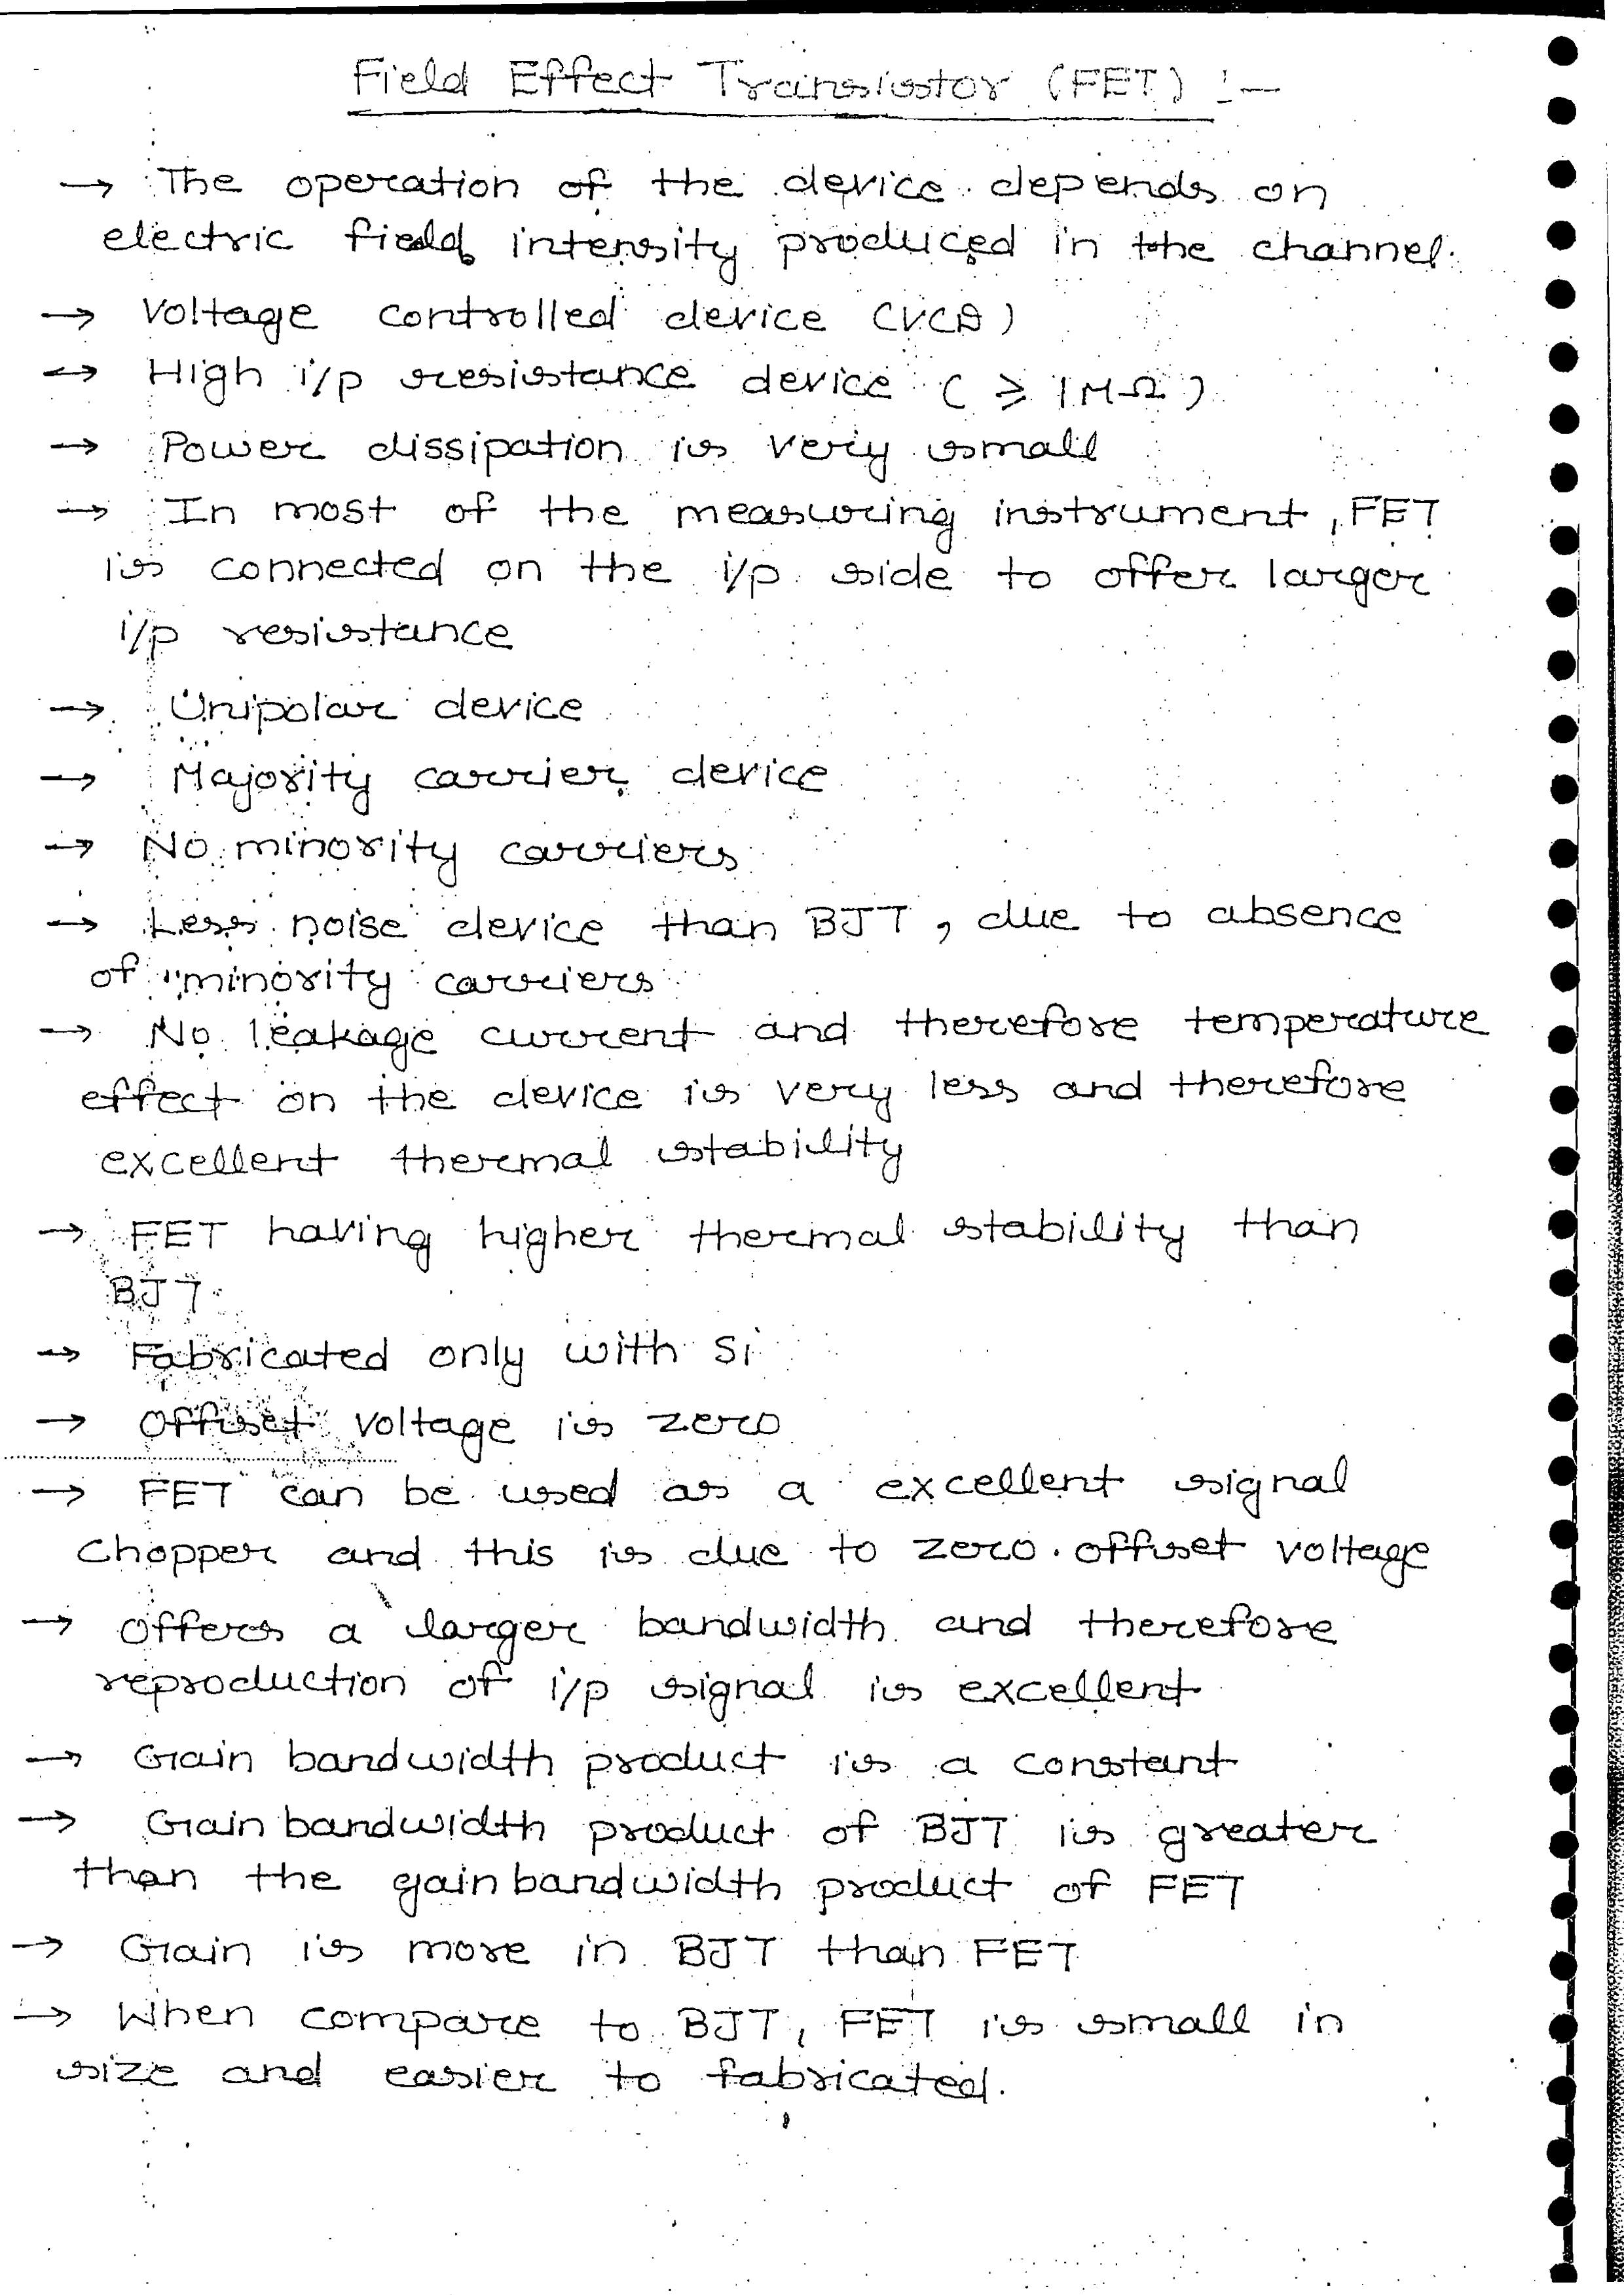 Field Effect Transistor (FET) :-
→ The operation of the device depends on
electric field intensity produced in the channel.
→ Voltage controlled device (VCD)
→ High i/p resistance device ( ⩾ 1MΩ )
→ Power dissipation is very small
→ In most of the measuring instrument, FET
is connected on the i/p side to offer larger
i/p resistance
→ Unipolar device
→ Majority carrier device
→ No minority carriers
→ Less noise device than BJT, due to absence
of minority carriers
→ No leakage current and therefore temperature
effect on the device is very less and therefore
excellent thermal stability
→ FET having higher thermal stability than
BJT.
→ Fabricated only with Si
→ Offset voltage is zero
→ FET can be used as a excellent signal
Chopper and this is due to zero offset voltage
→ Offers a larger bandwidth and therefore
reproduction of i/p signal is excellent
→ Gain bandwidth product is a constant
→ Gain bandwidth product of BJT is greater
than the gain bandwidth product of FET
→ Gain is more in BJT than FET
→ When compare to BJT, FET is small in
size and easier to fabricated.